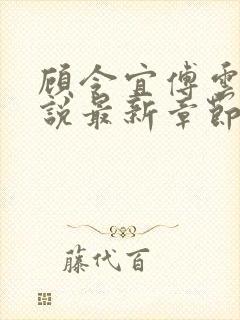 顾令宜傅雲
説最新章節
藤代百